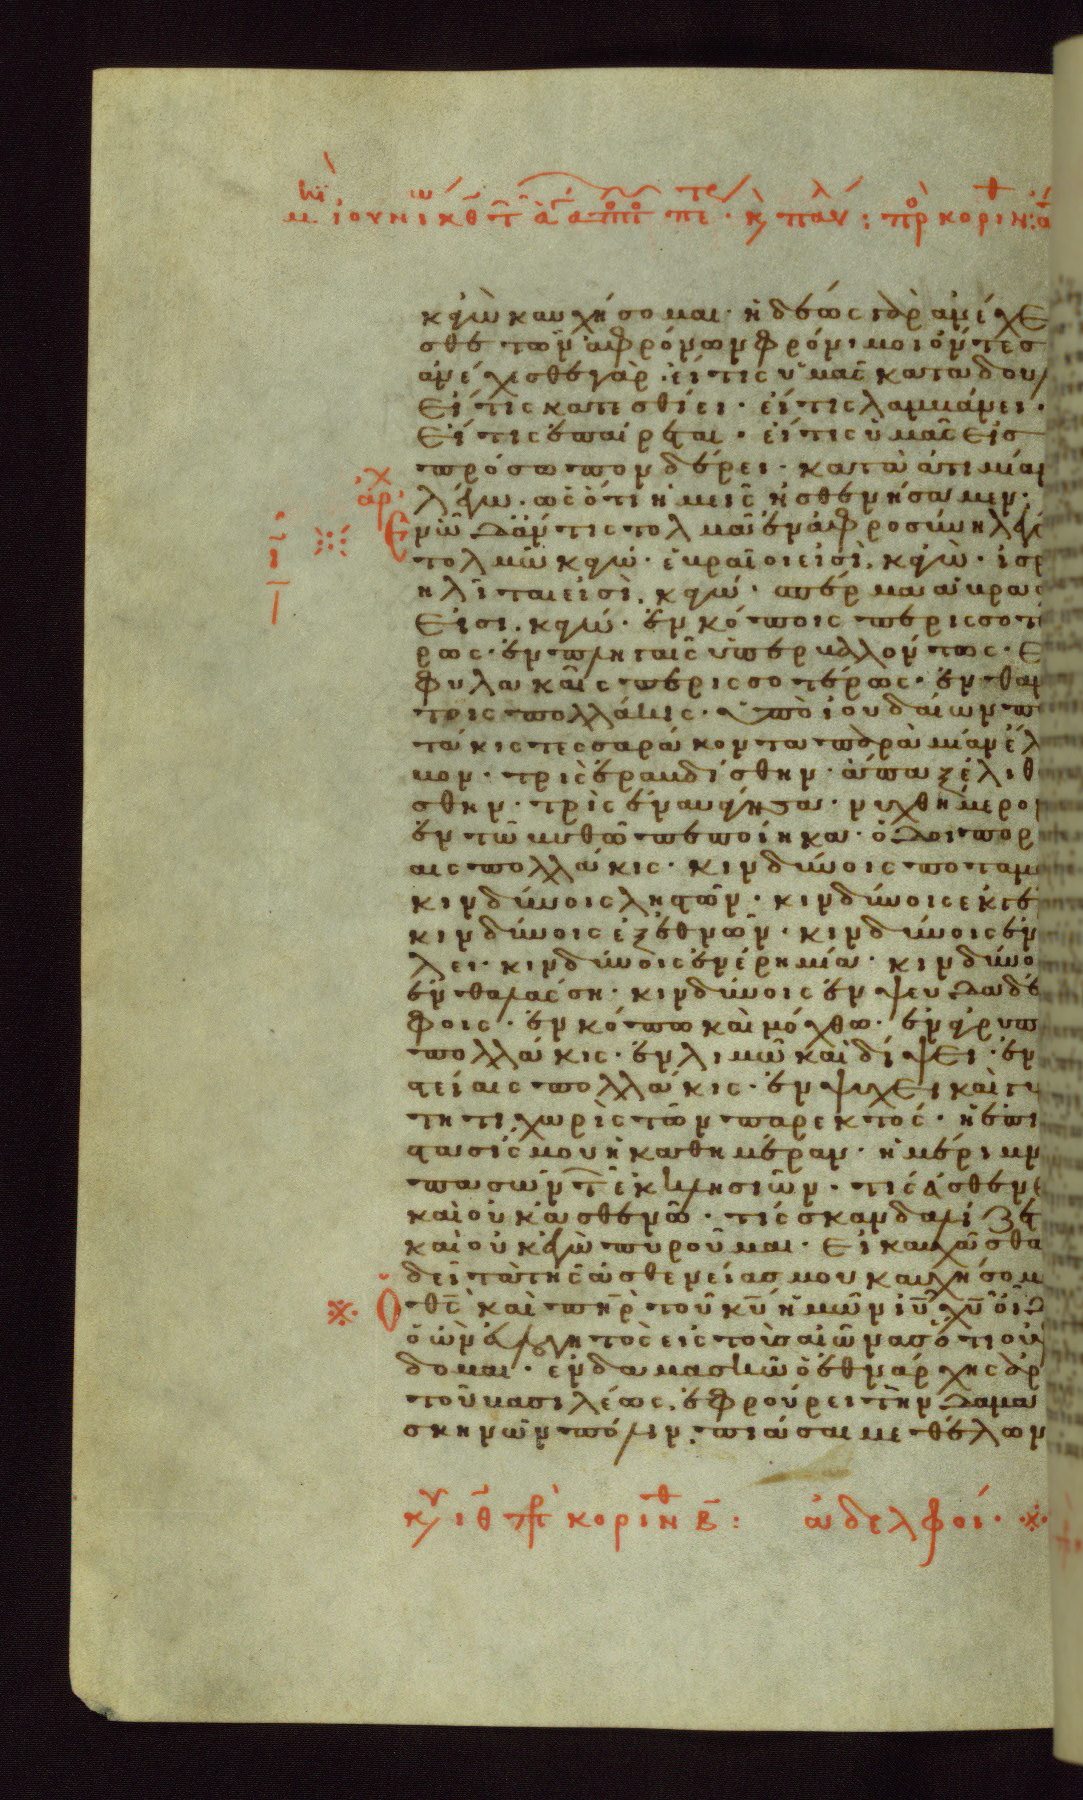 μη ἰουνίω κθ τ ἁγ ἀποστ πετ κ παυλ : πρ κορινθ
κἀγὼ καυχήσομαι· ἡδέως γὰρ ἀνέχε
σθε τῶν ἀφρόνων φρόνιμοι ὄντες
ἀνέχεσθε γὰρ· εἴ τις ὑμᾶς καταδου
εἴ τις κατεσθίει· εἴ τις λαμβάνει·
εἴ τις ἐπαίρεται· εἴ τις ὑμᾶς εἰς
πρόσωπον δέρει· κατὰ ἀτιμίαν
ἀρχ λέγω. ὡς ὅτι ἡμεῖς ἠσθενήσαμεν·
ἐν ὧ δἄν τις τολμᾶ ἐν ἀφροσύνη λέγ
τολμῶ κἀγώ· ἑβραῖοι εἰσὶ. κἀγὼ· ἰσρ
ηλῖται εἰσὶ. κἀγώ· σπέρμα ἀβρα
εἰσι. κἀγώ· ἐν κόποις περισσοτέ
ρως· ἐν πληγαῖς ὑπερβαλλόντως· ἐ
φυλακαῖς περισσοτέρως· ἐν θαν
τοις πολλάκις· ὑπὸ ἰουδαίων π
τάκις τεσσαράκοντα παρὰ μίαν ἔλ
βον· τρὶς ἐραβδίσθην· ἅπαξ ἐλιθ
σθην· τρὶς ἐναυάγησα· νυχθήμερον
ἐν τῶ βυθῶ πεποίηκα· ὁδοιπορ
αις πολλάκις· κινδύνοις ποταμ
κινδύνοις ληστῶν· κινδύνοις ἐκ γέ
κινδύνοις ἐξ ἐθνῶν· κινδύνοις ἐν
λει· κινδύνοις ἐν ἐρημία· κινδύνο
ἐν θαλάσση· κινδύνοις ἐν ψευδαδέ
φοις· ἐν κόπω καὶ μόχθω· ἐν ἀγρυπ
πολλάκις· ἐν λιμῶ καὶ δίψει· ἐν
στείαις πολλάκις· ἐν ψύχει καὶ γυ
τητι. χωρὶς τῶν παρεκτός· ἡ ἐπι
στασίς μου ἡ καθημέραν· ἡ μέριμν
πασῶν τ ἐκκλησιῶν· τίς ἀσθενε
καὶ οὐκ ἀσθενῶ· τίς σκανδαλίζετ
καὶ οὐκ ἐγὼ πυροῦμαι· εἰ καυχᾶσθα
δεῖ τὰ τῆς ἀσθενείας μου καυχήσομ
Ὁ θς καὶ πηρ τοῦ κυ ἡμῶν ιυ χυ οἶδ
ὁ ὢν εὐλογητὸς εἰς τοὺς αἰῶνας ὅτι οὐ
δομαι· ἐν δαμασκῶ ὁ ἐθνάρχης ἀρ
τοῦ βασιλέως. ἐφρούρει τὴν δαμα
σκηνῶν πόλιν. πιάσαι με θέλων
κυ ιθ πρ κορινθ β : ἀδελφοί·